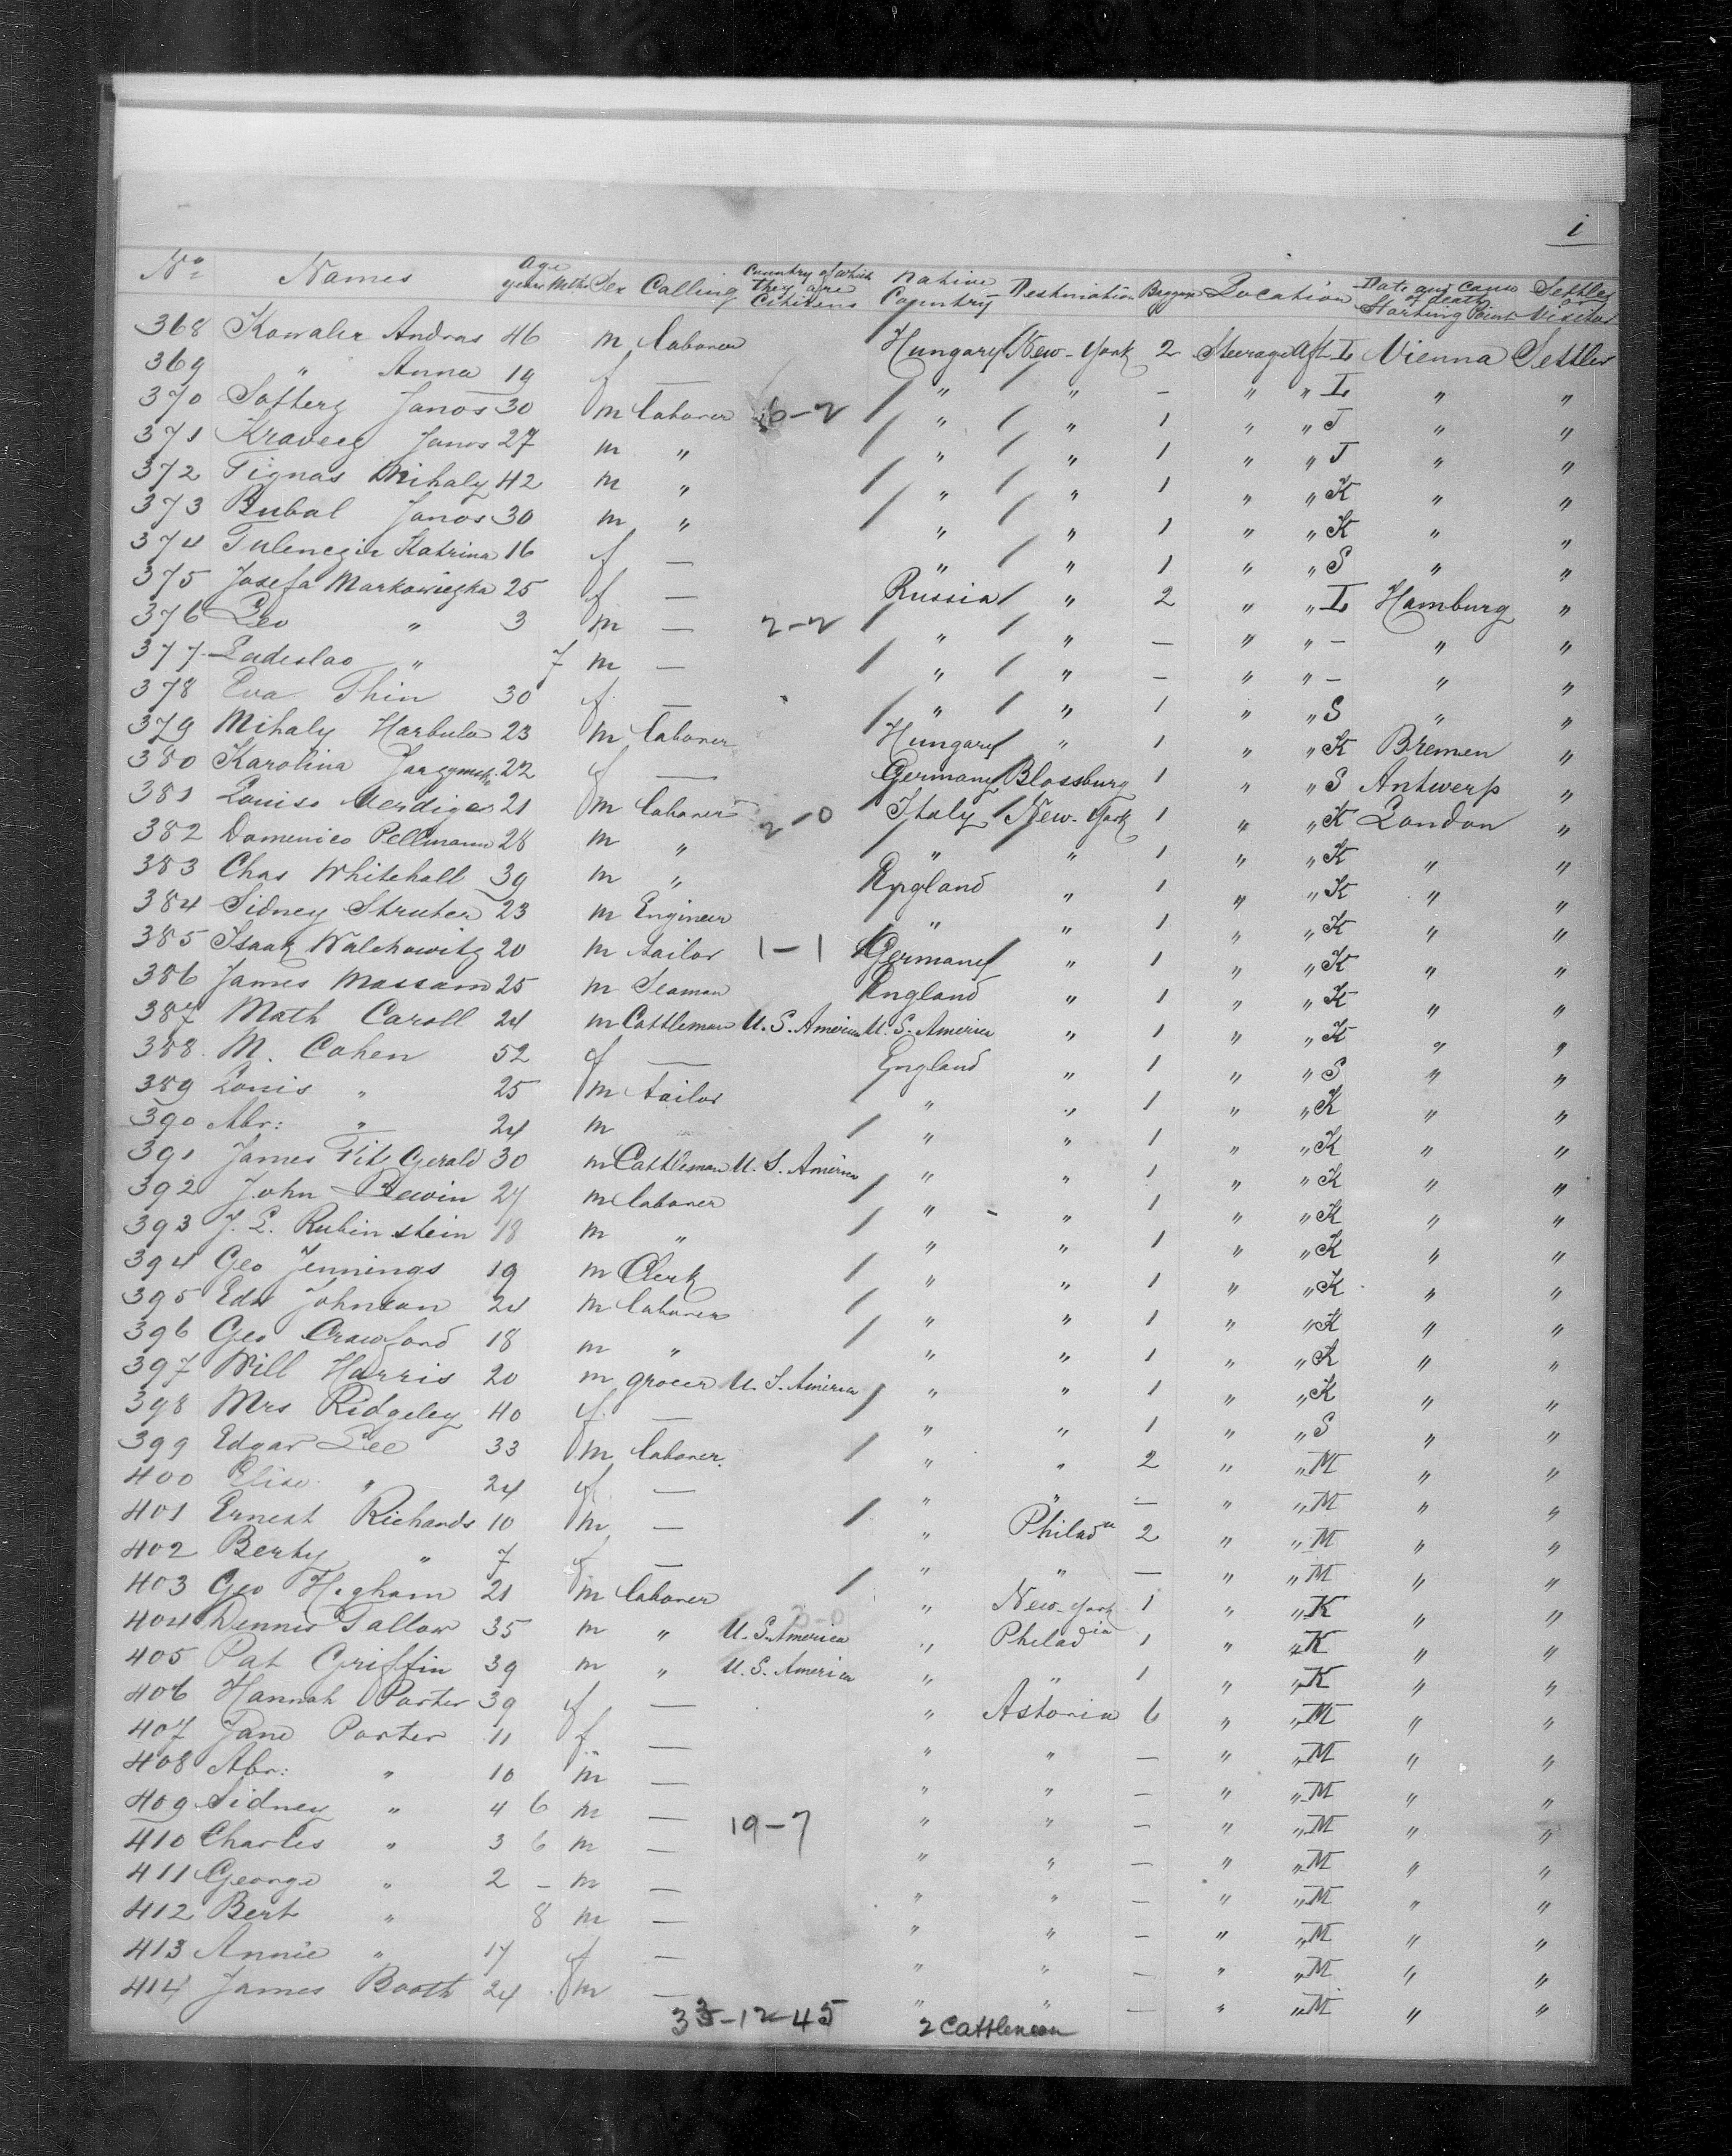 i
No Names Age years Mths Sex Calling Country of which they are Citizens Native Country Destination Baggage Location Date and Cause of death Starting Point Settler or Visitor
368 Andras 46 m laborer Hungary New-York 2 Steerage Aft L Vienna Settler
369 " Anna 19 f — " " - " " L " "
370 Janos 30 m laborer 6-2 " " 1 " " J " "
371 Janos 27 m " " " 1 " " J " "
372 Tignas Mihaly 42 m " " " 1 " " K " "
373 Bubal Janos 30 m " " " 1 " " K " "
374 Katrina 16 f — " " 1 " " S " "
375 Josefa 25 f — Russia " 2 " " L Hamburg "
376 Leo " 3 m — 2-2 " " — " " - " "
377 Ladislao " 7 m — " " — " " - " "
378 Eva Thin 30 f — " " 1 " " S " "
379 Mihaly Harbula 23 m laborer Hungary " 1 " " K Bremen "
380 Karolina 22 f — Germany Blossburg 1 " " S Antwerp "
381 21 m laborer 2-0 Italy New-York 1 " " K London "
382 Domenico Pellmann 28 m " " " 1 " " K " "
383 Chas Whitehall 39 m " England " 1 " " K " "
384 Sidney Struter 23 m Engineer " " 1 " " K " "
385 Isaak Walchowitz 20 m tailor 1-1 Germany " 1 " " K " "
386 James Massam 25 m Seaman England " 1 " " K " "
387 Math Caroll 24 m Cattleman U.S. America U.S. America " 1 " " K " "
388 M. Cohen 52 f — England " 1 " " S " "
389 Louis " 25 m tailor " " 1 " " K " "
390 Abr: " 24 m " " 1 " " K " "
391 James Fitz Gerald 30 m Cattleman U.S. America " " 1 " " K " "
392 John 27 m laborer " " 1 " " K " "
393 J. L. Rubinstein 18 m " " " 1 " " K " "
394 Geo Jennings 19 m Clerk " " 1 " " K " "
395 Edw Johnson 24 m laborer " " 1 " " K " "
396 Geo Crawford 18 m " " " 1 " " K " "
397 Will Harris 20 m grocer U.S. America " " 1 " " K " "
398 Mrs Ridgeley 40 f — " " 1 " " S " "
399 Edgar Lee 33 m laborer " " 2 " " M " "
400 Elise " 24 f — " " — " " M " "
401 Ernest Richards 10 m — " Philada 2 " " M " "
402 Berty " 7 f — " " — " " M " "
403 Geo Higham 21 m laborer " New-York 1 " " K " "
404 Dennis 35 m " U.S. America " Philadia 1 " " K " "
405 Pat Griffin 39 m " U.S. America " " 1 " " K " "
406 Hannah Porter 39 f — " Astoria 6 " " M " "
407 Jane Porter 11 f — " " — " " M " "
408 Abr: " 10 m — " " — " " M " "
409 Sidney " 4 6 m — 19-7 " " — " " M " "
410 Charles " 3 6 m — " " — " " M " "
411 George " 2 - m — " " — " " M " "
412 Bert " 8 m — " " — " " M " "
413 Annie " 17 f — " " — " " M " "
414 James Booth 24 m — " " — " " M " "
33-12-45 2 Cattlemen